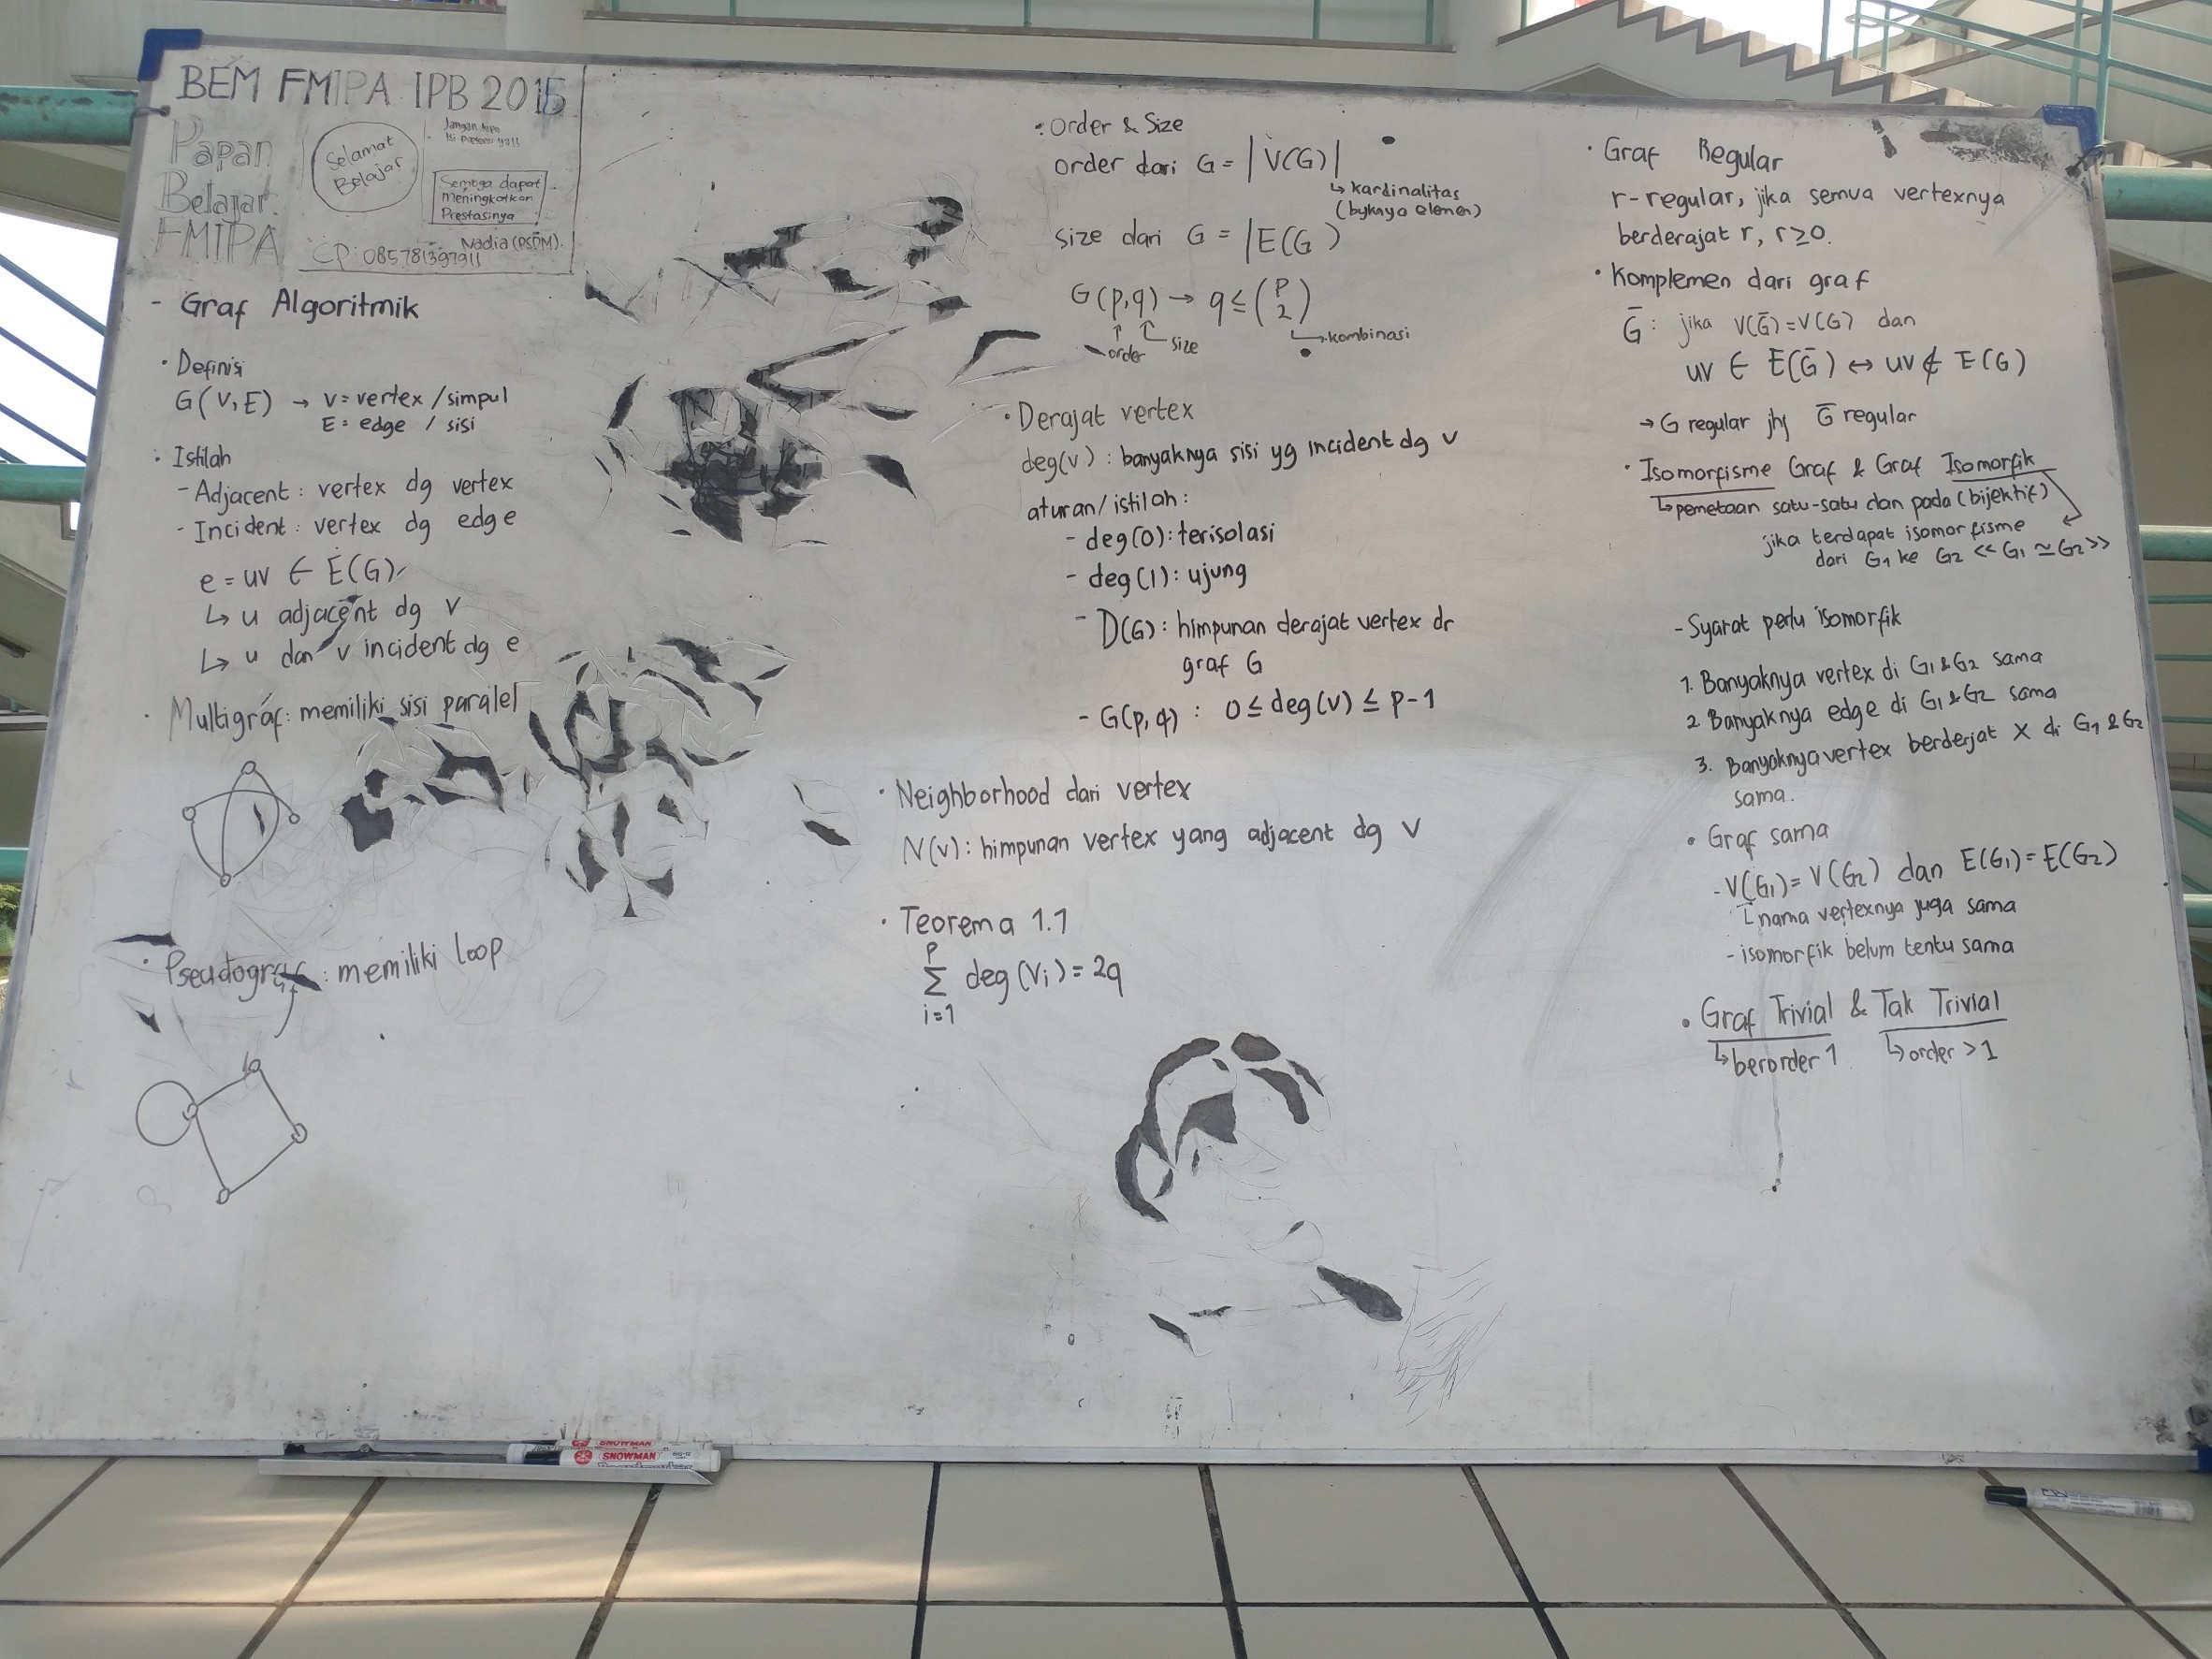 BEM FMIPA IPB 2015
Papan
Belajar
FMIPA
Selamat
Belajar
Jangan lupa
isi presensi ya!!
Semoga dapat
meningkatkan
Prestasinya
Nadia (PSDM).
CP: 085781397911
- Graf Algoritmik
• Definisi
G(V,E) → V = vertex / simpul
E = edge / sisi
• Istilah
- Adjacent : vertex dg vertex
- Incident : vertex dg edge
e = uv ∈ E(G)
↳ u adjacent dg v
↳ u dan v incident dg e
• Multigraf : memiliki sisi paralel
• Pseudograf : memiliki loop
• Order & Size
order dari G = |V(G)|
↳ kardinalitas
(byknya elemen)
size dari G = |E(G)
G(p,q) → q ≤ (p 2)
order size
kombinasi
• Derajat vertex
deg(v) : banyaknya sisi yg incident dg v
aturan/istilah :
- deg(0) : terisolasi
- deg(1) : ujung
- D(G) : himpunan derajat vertex dr
graf G
- G(p,q) : 0 ≤ deg(v) ≤ p-1
• Neighborhood dari vertex
N(v) : himpunan vertex yang adjacent dg v
• Teorema 1.1
p
Σ deg(vi) = 2q
i=1
• Graf Regular
r-regular, jika semua vertexnya
berderajat r, r ≥ 0.
• Komplemen dari graf
G̅ : jika V(G̅) = V(G) dan
uv ∈ E(G̅) ↔ uv ∉ E(G)
→ G regular jhj G̅ regular
• Isomorfisme Graf & Graf Isomorfik
↳ pemetaan satu-satu dan pada (bijektif)
jika terdapat isomorfisme
dari G1 ke G2 << G1 ≃ G2 >>
- Syarat perlu isomorfik
1. Banyaknya vertex di G1 & G2 sama
2. Banyaknya edge di G1 & G2 sama
3. Banyaknya vertex berderjat x di G1 & G2
sama.
• Graf sama
- V(G1) = V(G2) dan E(G1) = E(G2)
nama vertexnya juga sama
- isomorfik belum tentu sama
• Graf Trivial & Tak Trivial
↳ berorder 1 ↳ order > 1
SNOWMAN
SNOWMAN